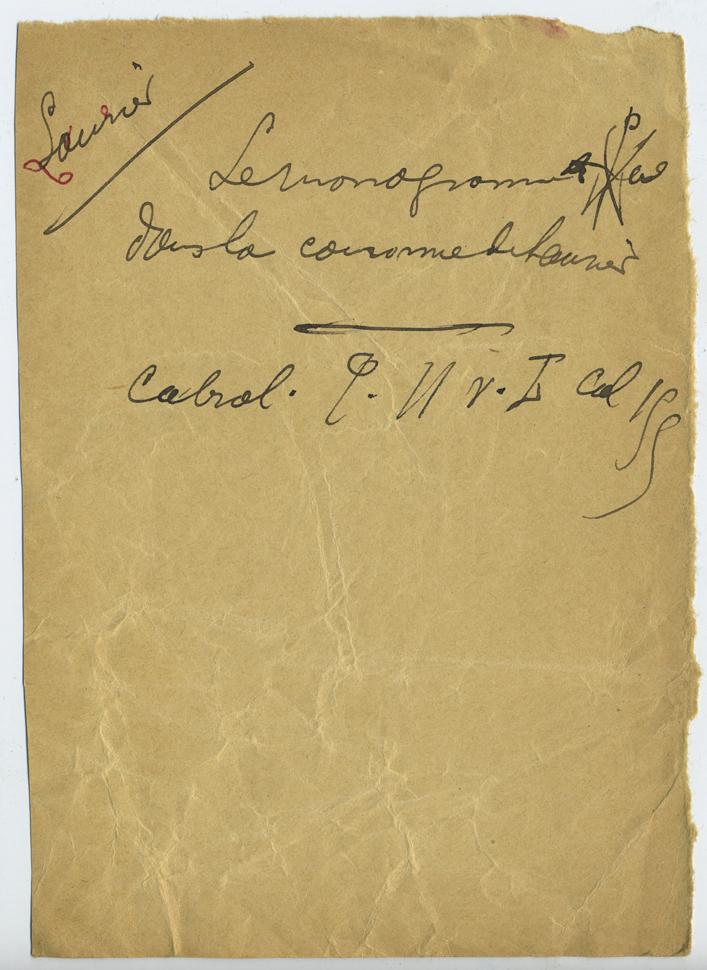 Laurier
Le monogramme
dans la couronne de laurier
Cabrol. P. II v. I col